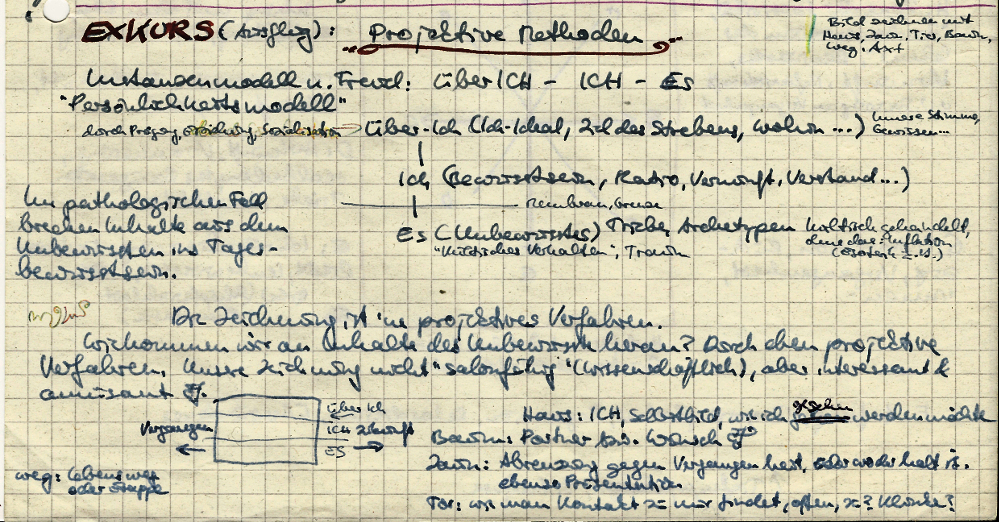 EXKURS (Ausflug): Projektive Methoden
Bild zeichnen mit
Haus, Zaun, Tier, Baum,
Weg. Axt
Instanzenmodell n. Freud: ÜberICH - ICH - Es
"Persönlichkeitsmodell"
durch Prägung, Erziehung, Sozialisation Über-Ich (Ich-Ideal, Ziel des Strebens, wohin ...) innere Stimme,
Gewissen...
Ich (Bewusstsein, Ratio, Vernunft, Verstand...)
Membran, Grenze
Im pathologischen Fall
brechen Inhalte aus dem
Unbewussten ins Tages-
bewusstsein.
Es (Unbewusstes) Triebe, Archetypen
gehandelt,
ohne das: Inflation
(Esoterik z.B.)
Verhalten", Traum
Die Zeichnung ist 'ne projektives Verfahren.
Wie kommen wir an Inhalte des Unbewussten heran? Durch eben projektive
Verfahren. Unsere Zeichnung nicht "salonfähig" (wissenschaftlich), aber interessant &
amüsant
Über Ich
Vergangen ICH Zukunft
ES
Weg: Lebensweg
oder
Haus: ICH, Selbstbild, wie ich gesehen werden möchte
Baum: Partner bzw. Wunsch
Zaun: Abgrenzung gegen Vergangenheit, oder wo der halt is.
ebenso Präsentation
Tor: wie man Kontakt zu mir findet, offen, zu? Klinke?